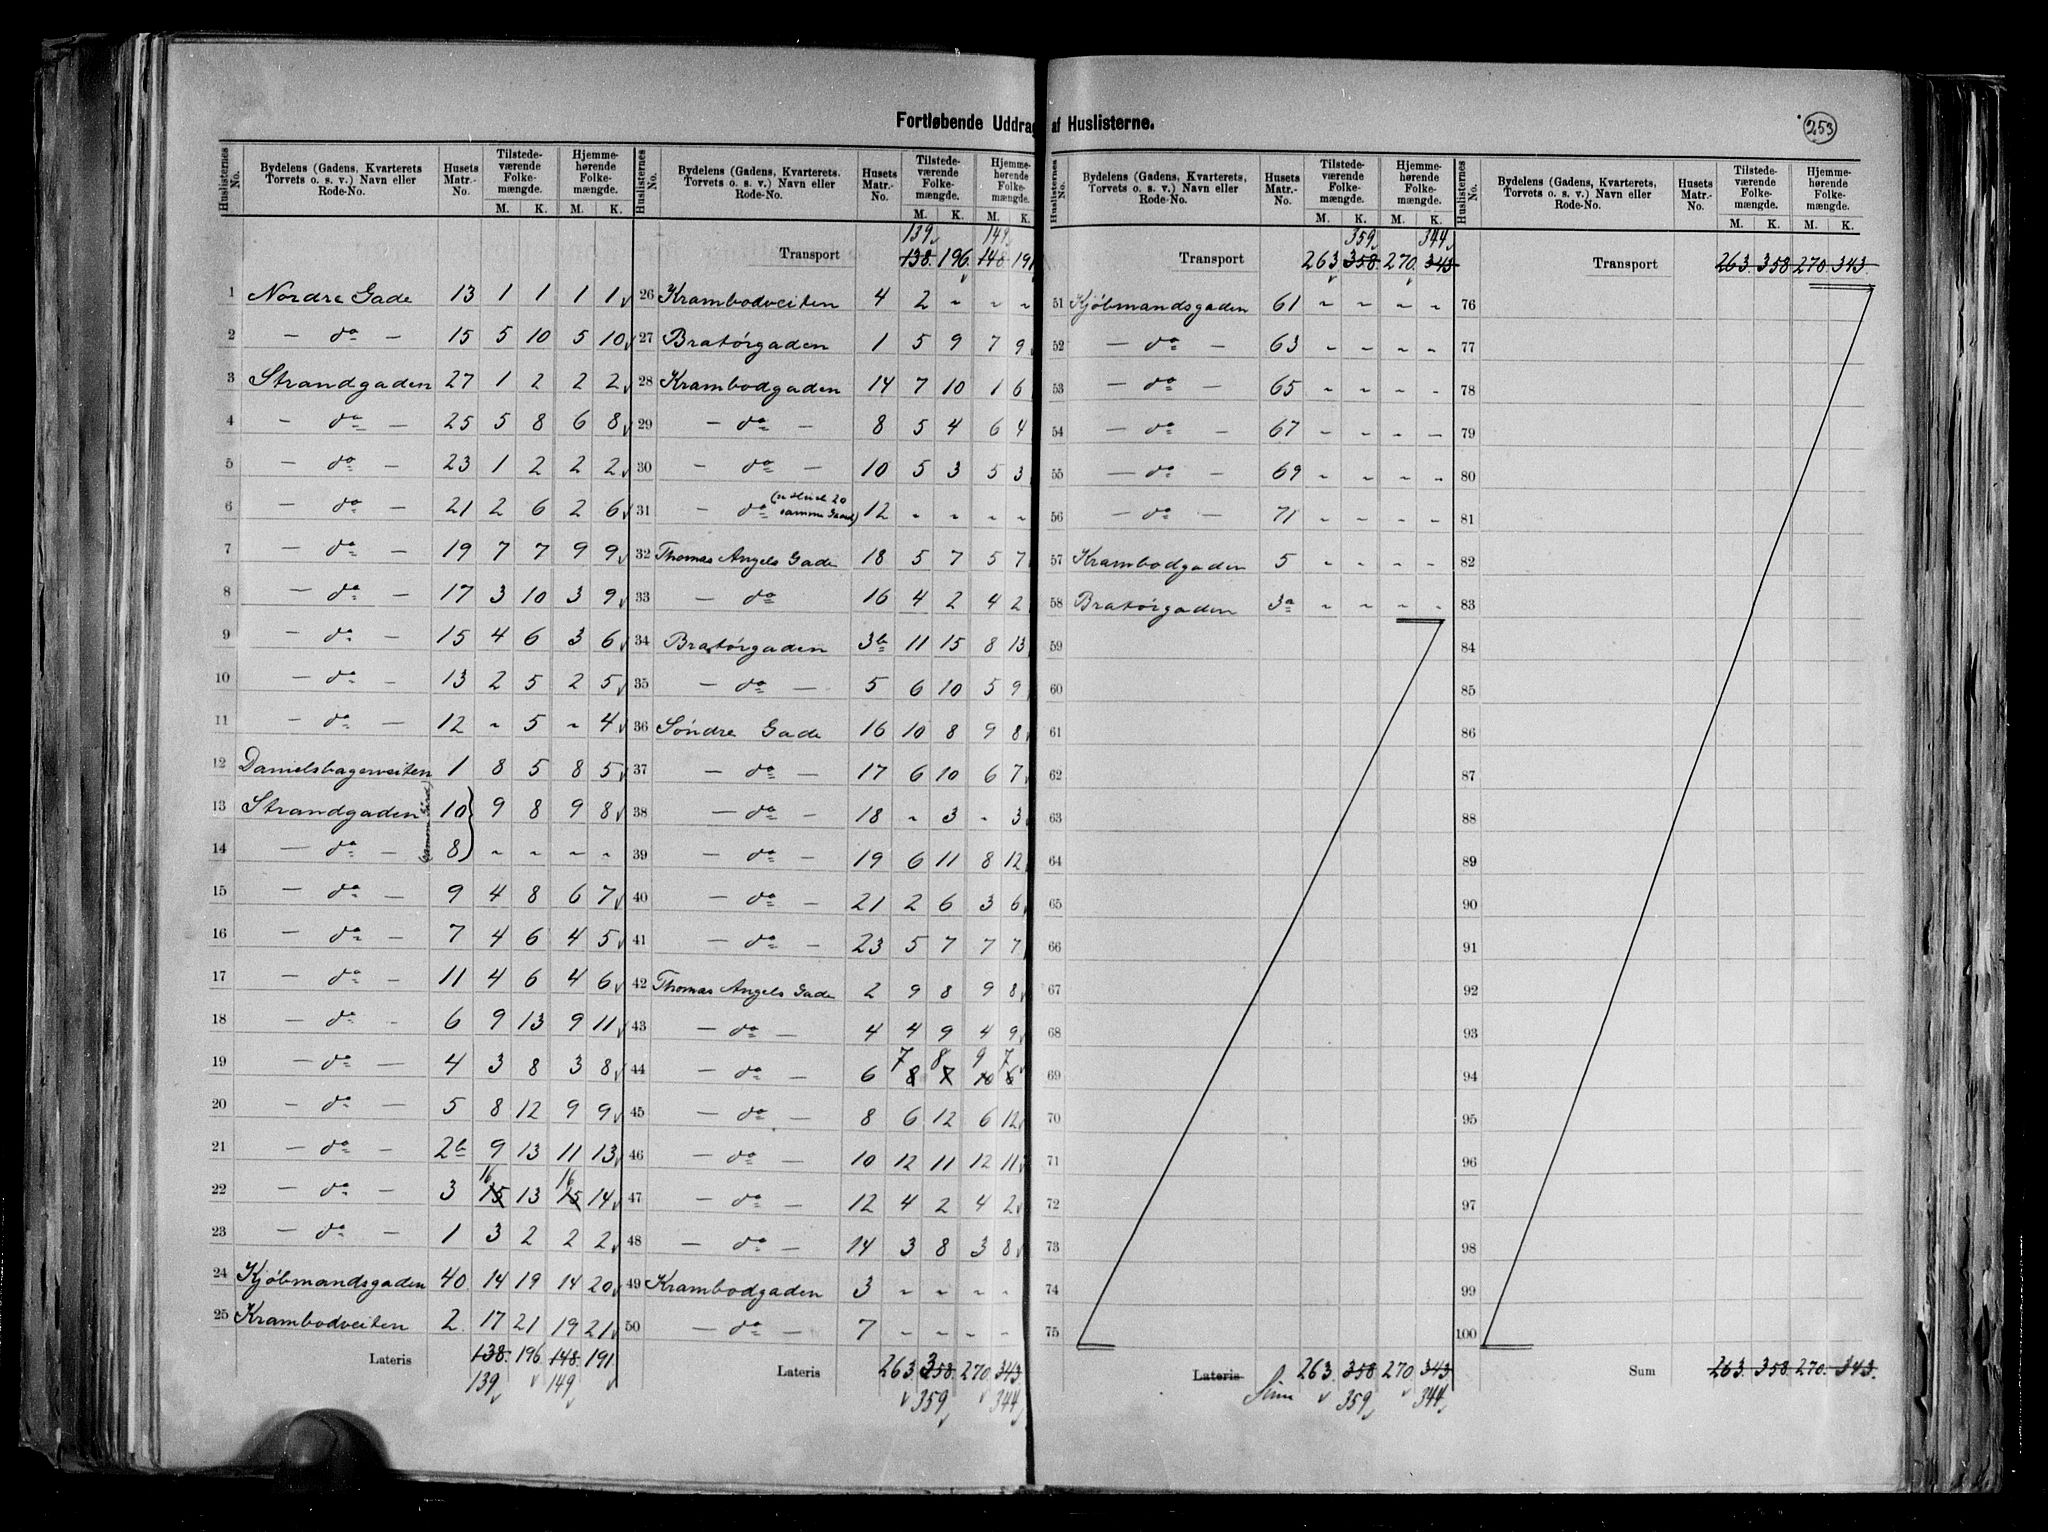 Fortløbende Uddrag af Huslisterne.
253
Huslisternes No. | Bydelens (Gadens, Kvarterets Torvets o. s. v.) Navn eller Rode-No. | Husets Matr.-No. | Tilstedeværende Folkemængde. M. K. | Hjemmehørende Folkemængde. M. K.
1 Nordre Gade 13 1 1 1 1
2 — do — 15 5 10 5 10
3 Strandgaden 27 1 2 2 2
4 — do — 25 5 8 6 8
5 — do — 23 1 2 2 2
6 — do — 21 2 6 2 6
7 — do — 19 7 7 9 9
8 — do — 17 3 10 3 9
9 — do — 15 4 6 3 6
10 — do — 13 2 5 2 5
11 — do — 12 „ 5 „ 4
12 Danielsbagerveiten 1 8 5 8 5
13 Strandgaden (samme Gård) 10 9 8 9 8
14 — do — 8 „ „ „ „
15 — do — 9 4 8 6 7
16 — do — 7 4 6 4 5
17 — do — 11 4 6 4 6
18 — do — 6 9 13 9 11
19 — do — 4 3 8 3 8
20 — do — 5 8 12 9 9
21 — do — 2b 9 13 11 13
22 — do — 3 15 16 13 15 16 14
23 — do — 1 3 2 2 2
24 Kjøbmandsgaden 40 14 19 14 20
25 Krambodveiten 2 17 21 19 21
Lateris 138. 196 148. 191
139 149
Huslisternes No. | Bydelens (Gadens, Kvarterets, Torvets o. s. v.) Navn eller Rode-No. | Husets Matr.-No. | Tilstedeværende Folkemængde. M. K. | Hjemmehørende Folkemængde. M. K.
139 149
Transport 138. 196 148 191
26 Krambodveiten 4 2 „ „ „
27 Bratørgaden 1 5 9 7 9
28 Krambodgaden 14 7 10 1 6
29 — do — 8 5 4 6 4
30 — do — 10 5 3 5 3
31 — do samme Gaard) 12 „ „ „ „
32 Thomas Angels Gade 18 5 7 5 7
33 — do 16 4 2 4 2
34 Bratørgaden 3b 11 15 8 13
35 — do — 5 6 10 5 9
36 Søndre Gade 16 10 8 9 8
37 — do — 17 6 10 6 7
38 — do — 18 „ 3 „ 3
39 — do — 19 6 11 8 12
40 — do — 21 2 6 3 6
41 — do — 23 5 7 7 7
42 Thomas Angels Gade 2 9 8 9 8
43 — do — 4 4 9 4 9
7 8 9 7
44 — do — 6 8 7 10 6
45 — do — 8 6 12 6 12
46 — do — 10 12 11 12 11
47 — do — 12 4 2 4 2
48 — do — 14 3 8 3 8
49 Krambodgaden 3 „ „ „ „
50 — do — 7 „ „ „ „
Lateris 263. 358. 270. 343
359 344
Huslisternes No. | Bydelens (Gadens, Kvarterets, Torvets o. s. v.) Navn eller Rode-No. | Husets Matr.-No. | Tilstedeværende Folkemængde. M. K. | Hjemmehørende Folkemængde. M. K.
359 344
Transport 263 358 270. 343
51 Kjøbmandsgaden 61 „ „ „ „
52 — do — 63 „ „ „ „
53 — do — 65 „ „ „ „
54 — do — 67 „ „ „ „
55 — do — 69 „ „ „ „
56 — do — 71 „ „ „ „
57 Krambodgaden 5 „ „ „ „
58 Bratørgaden 3a „ „ „ „
59
60
61
62
63
64
65
66
67
68
69
70
71
72
73
74
75
Lateris 263. 358 270. 343
Sum 359 344
Huslisternes No. | Bydelens (Gadens, Kvarterets, Torvets o. s. v.) Navn eller Rode-No. | Husets Matr.-No. | Tilstedeværende Folkemængde. M. K. | Hjemmehørende Folkemængde. M. K.
Transport 263. 358 270. 343.
76
77
78
79
80
81
82
83
84
85
86
87
88
89
90
91
92
93
94
95
96
97
98
99
100
Sum 263. 358. 270. 343.